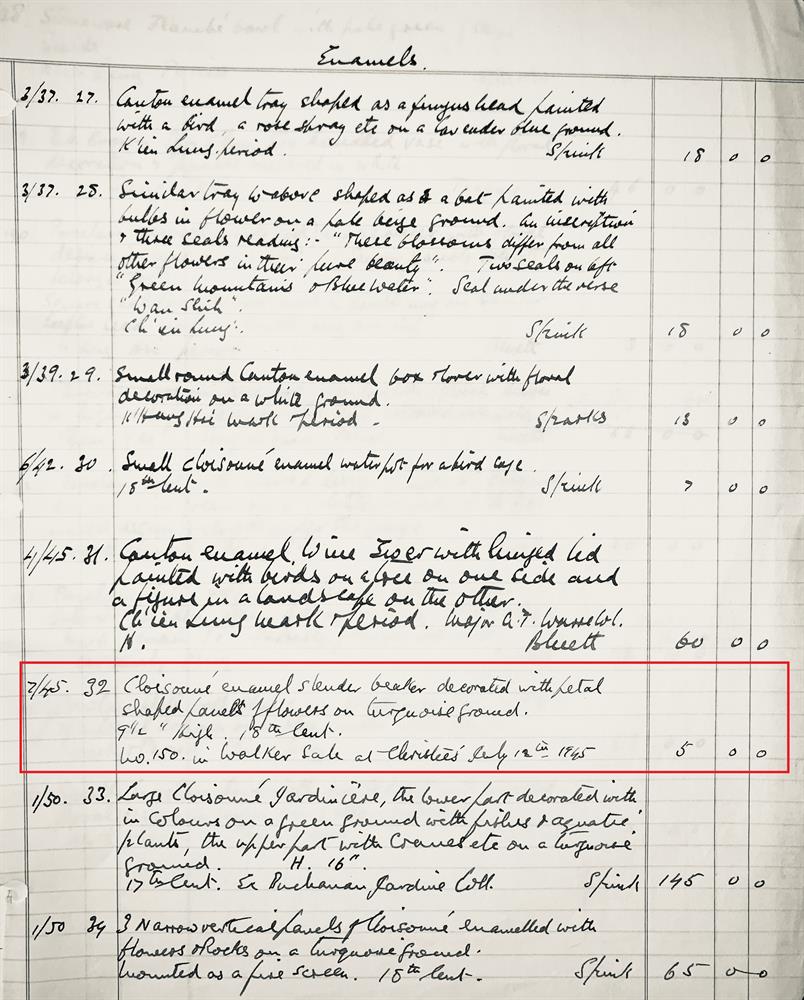 Enamels.
3/37. 27. Canton enamel tray shaped as a fungus head painted
with a bird, a rose spray etc on a lavender blue ground.
K'ien Lung. period. Spink 18 0 0
3/37. 28. Similar tray to above shaped as a bat painted with
bulbs in flower on a pale beige ground. An inscription
& three seals reading:- "These blossoms differ from all
other flowers in their pure beauty". Two seals on left
"Green Mountains & Blue Water". Seal under the verse
"Wan Shih".
Ch'ien Lung. Spink 18 0 0
3/39. 29. Small round Canton enamel box & cover with floral
decoration on a white ground.
K'Hang Hsi mark & period. Sparks 13 0 0
6/42. 30. Small Cloisonné enamel water pot for a bird cage.
18th Cent. Spink 7 0 0
4/45. 31. Canton enamel Wine Ewer with hinged lid
painted with birds on a tree on one side and
a figure in a landscape on the other.
Ch'ien Lung mark & period. Major A.T. Warre
H. Bluett 60 0 0
7/45. 32 Cloisonné enamel slender beaker decorated with petal
shaped panels of flowers on turquoise ground.
9 1/2" high. 18th Cent.
No. 150. in Walker Sale at Christies July 12th 1945 5 0 0
1/50. 33. Large Cloisonné Jardinière, the lower part decorated with
in colours on a green ground with fishes & aquatic
plants, the upper part with Cranes etc on a turquoise
ground. H. 16".
17th Cent. Ex Buchanan Jardine Coll. Spink 145 0 0
1/50 34 3 Narrow vertical panels of Cloisonné enamelled with
flowers & Rocks on a turquoise ground.
Mounted as a fire screen. 18th Cent. Spink 65 0 0